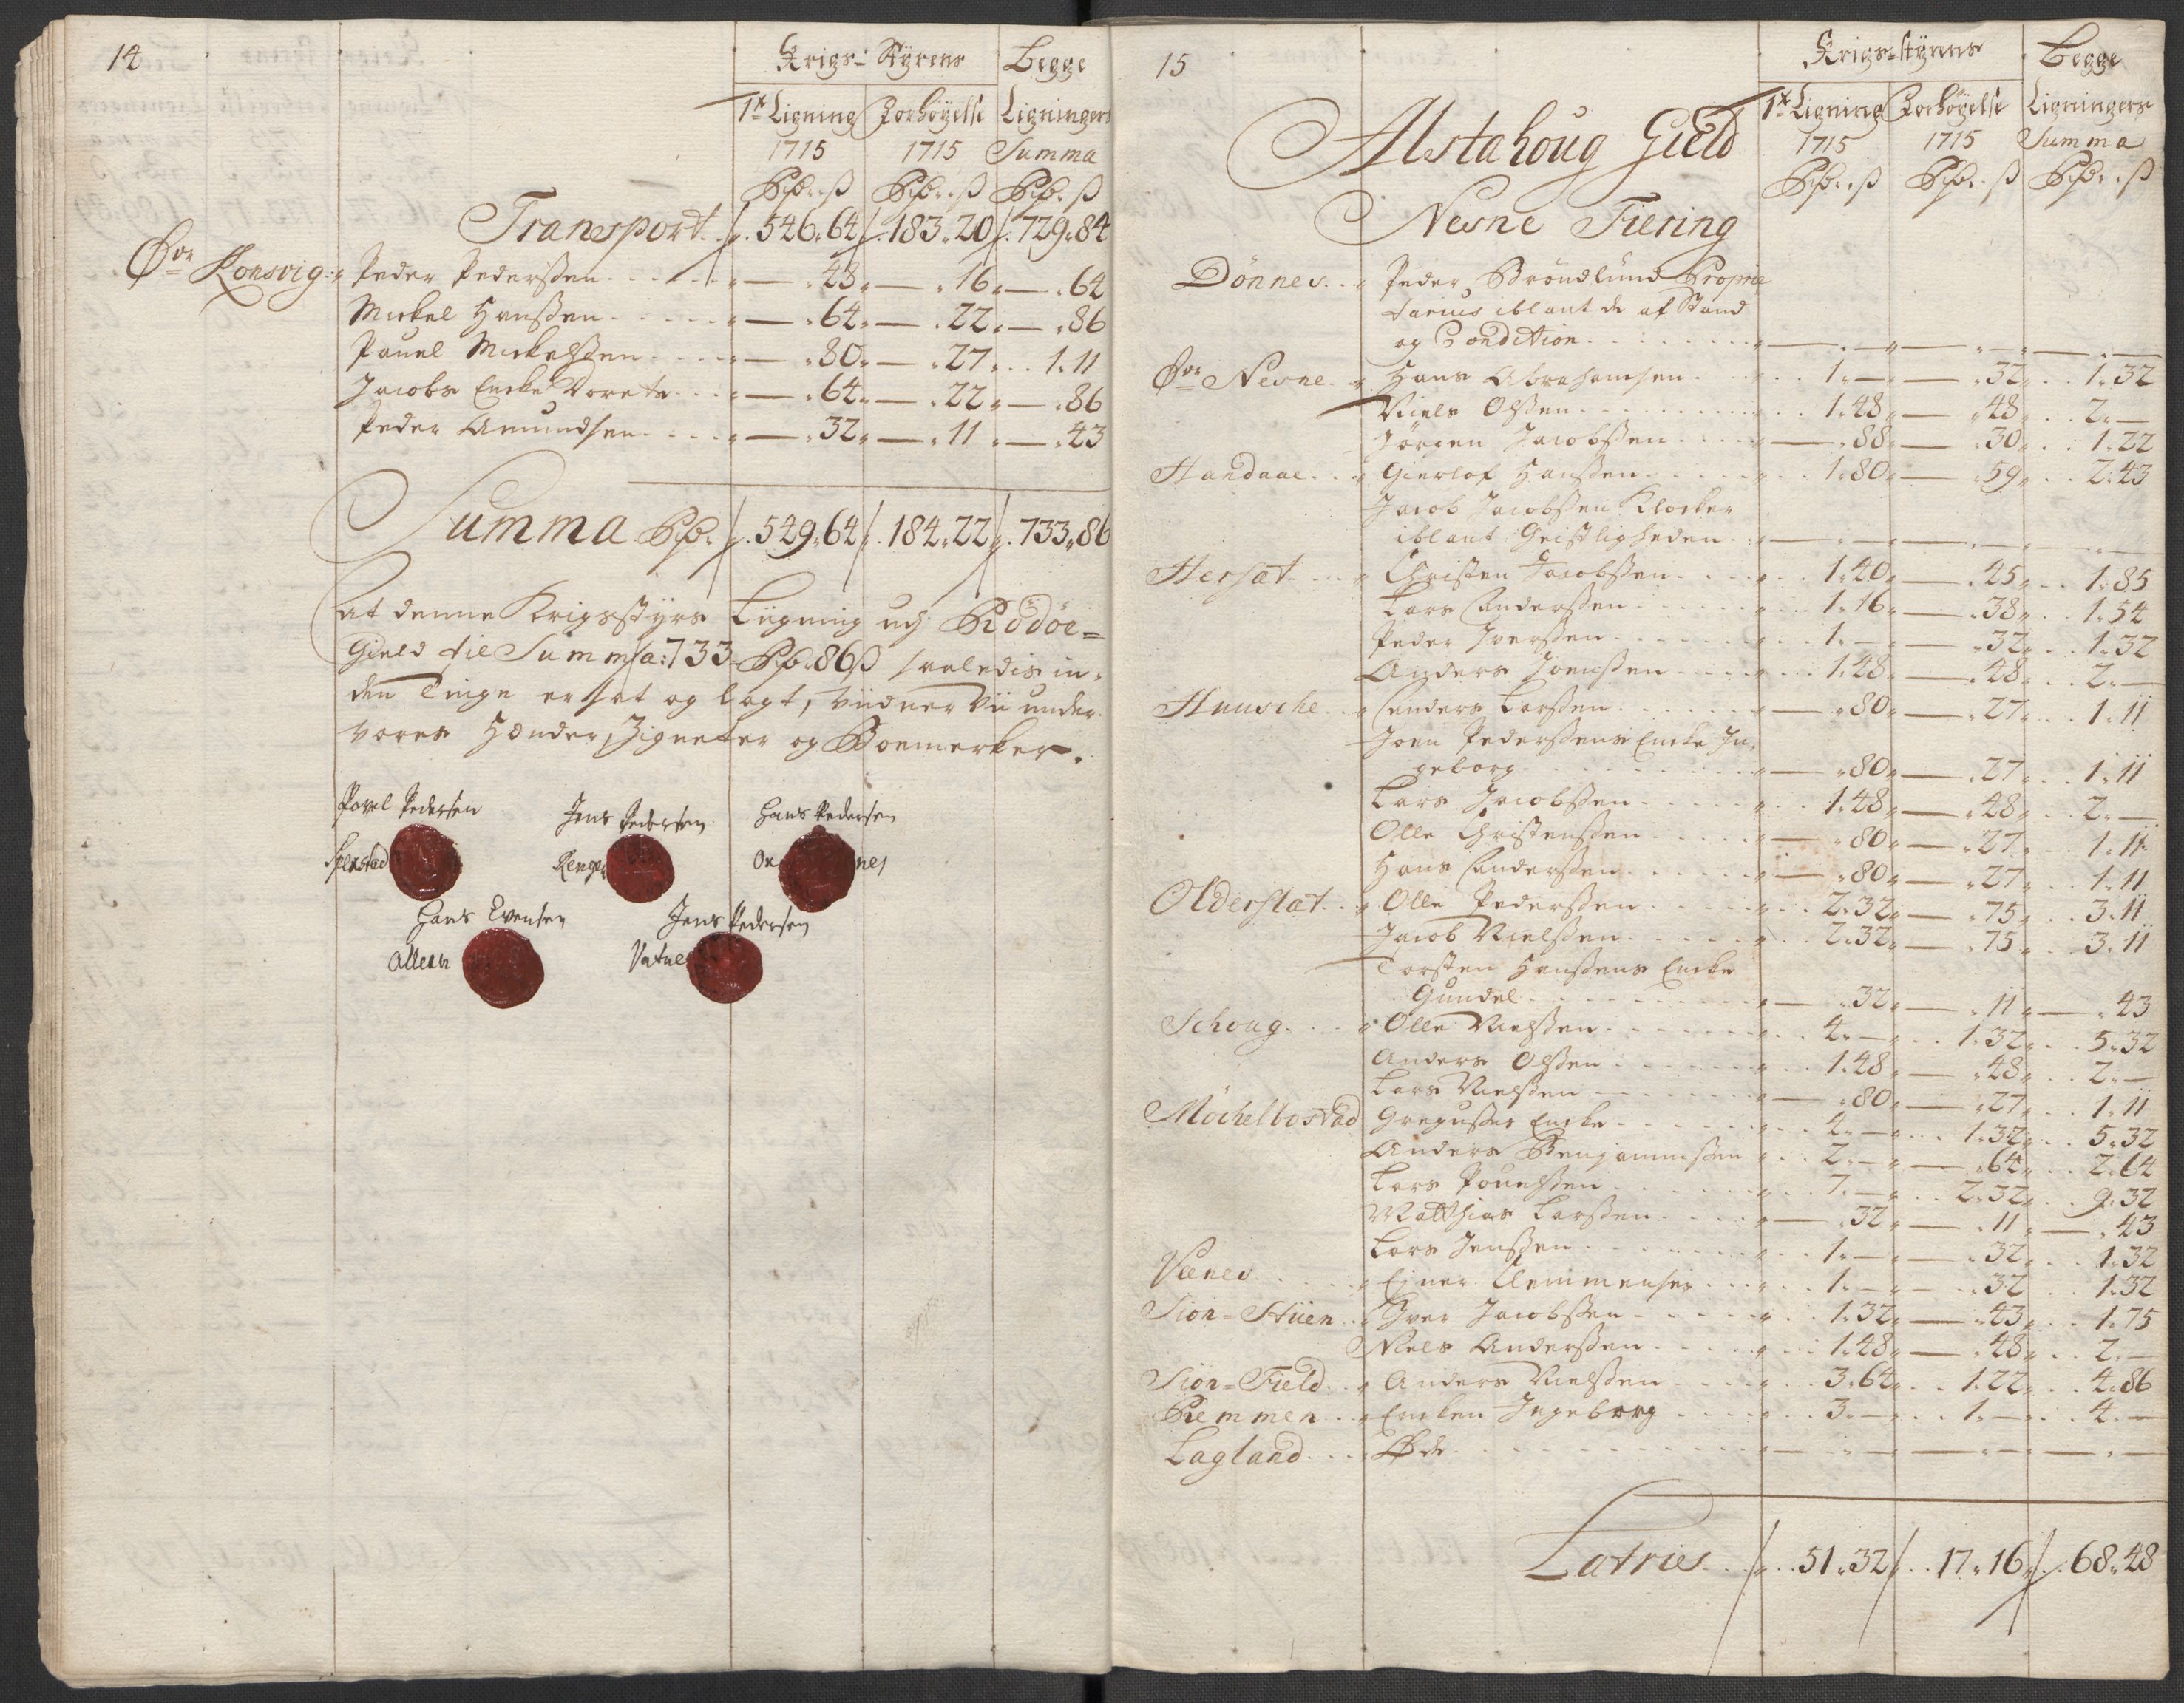 14
Krigs-Styrens Begge
1te Ligning Forhöyelse Ligningers
1715 1715 Summa
Rdr. ß Rdr. ß Rdr. ß
Transport . 546.64 . 183.20 . 729.84
Øvr Konsvig Peder Pedersen — 48 — 16 — 64
Mickel Hanssen — 64 — 22 — 86
Pauel Mickelssen — 80 — 27 1.11
Jacobs Encke Dorete — 64 — 22 — 86
Peder Amundsen — 32 — 11 — 43
Summa Rdr. 549.64 . 184.22 . 733.86
At denne Krigsstyrs Ligning udj Rödöe=
Gield til Summa: 733 Rdr. 86 ß saaledis in-
den Tinge er sat og lagt, viidner vii under
vores Hænder, Zigneter og Boemerker.
Povel Pedersen Jens Pedersen Hans Pedersen
Selsstad Renge On nes
Hans Evensen Jens Pedersen
Alleen Vatne
15
Krigs-styrens Begge
1te Ligning Forhöyelse Ligningers
1715 1715 Summa
Rdr. ß Rdr. ß Rdr. ß
Alstahoug Gield
Nesne Fiering
Dönnes Peder Bröndlund Proprie
tarius iblant de af Stand
og Condition — — —
Øvr Nesne Hans Abrahamsen 1.— — 32 1.32
Niels Olssen 1.48 — 48 2.—
Jörgen Jacobssen — 88 — 30 1.22
Handaae Gierlof Hanssen 1.80 — 59 2.43
Jacob Jacobssen Klocker
iblant Geistligheden — — —
Hersat Christen Jacobssen 1.40 — 45 1.85
Lars Anderssen 1.16 — 38 1.54
Peder Iverssen 1.— — 32 1.32
Anders Joenssen 1.48 — 48 2.—
Huusche Anders Larssen — 80 — 27 1.11
Joen Pederssens Encke In-
geborg — 80 — 27 1.11
Lars Jacobssen 1.48 — 48 2.—
Olle Christenssen — 80 — 27 1.11
Hans Anderssen — 80 — 27 1.11
Olderslat Olle Pederssen 2.32 — 75 3.11
Jacob Nielssen 2.32 — 75 3.11
Torsten Hanssens Encke
Gundel — 32 — 11 — 43
Schoug Olle Nielssen 4.— 1.32 5.32
Anders Olssen 1.48 — 48 2.—
Lars Nielssen — 80 — 27 1.11
Möchelbostad Gregusses Encke 4.— 1.32 5.32
Anders Benjaminssen 2.— — 64 2.64
Lars Pouelssen 7.— 2.32 9.32
Matthias Larssen — 32 — 11 — 43
Lars Jenssen 1.— — 32 1.32
Vænes Ejner Clemmensen 1.— — 32 1.32
Sion=Stüen Iver Jacobssen 1.32 — 43 1.75
Niels Anderssen 1.48 — 48 2.—
Sion=Field Anders Nielssen 3.64 1.22 4.86
Remmen Encken Ingeborg 3.— 1.— 4.—
Lagland Øde — — —
Latries . 51.32 . 17.16 . 68.48